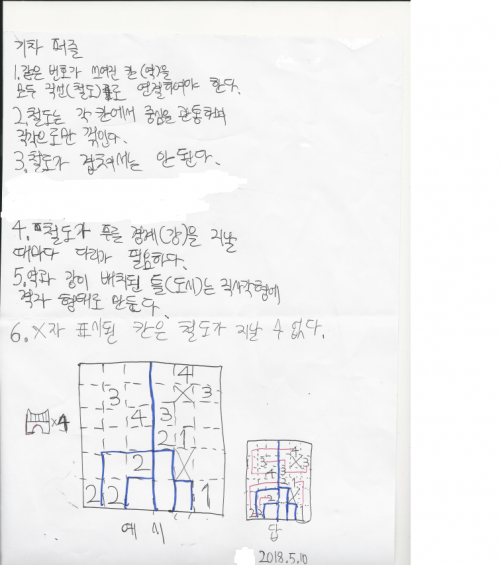 기차 퍼즐
1. 같은 번호가 쓰여진 칸(역)을
모두 직선(철도)로 연결하여야 한다.
2. 철도는 각 칸에서 중심을 관통하며
직각으로만 꺾인다.
3. 철도가 겹쳐서는 안 된다.
4. 철도가 푸른 경계(강)을 지날
때마다 다리가 필요하다.
5. 역과 강이 배치된 틀(도시)는 직사각형에
격자 형태로 만든다.
6. X자 표시된 칸은 철도가 지날 수 없다.
4
3 X 3
4 3
2 1
×4
2 X
2 2 1
4
3 X 3
4 3
2 1
2 X
2 2 1
예시
답
2018.5.10